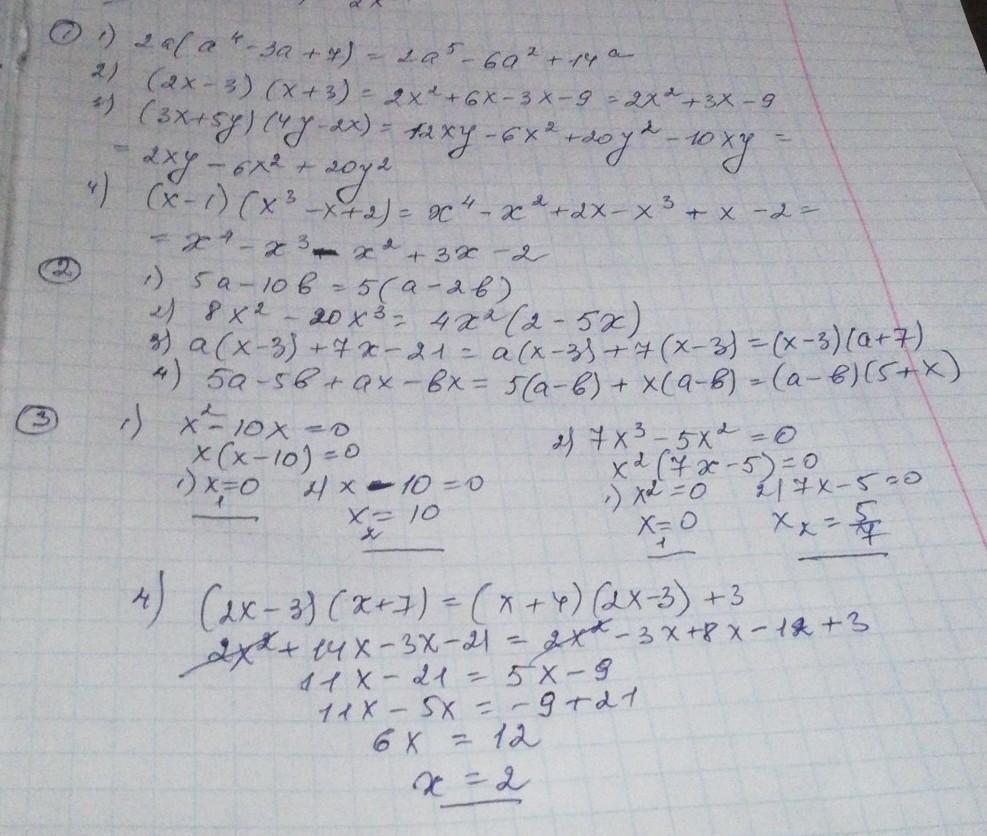 ① 1) 2a(a⁴ - 3a + 7) = 2a⁵ - 6a² + 14a
2) (2x - 3)(x + 3) = 2x² + 6x - 3x - 9 = 2x² + 3x - 9
3) (3x + 5y)(4y - 2x) = 12xy - 6x² + 20y² - 10xy =
= 2xy - 6x² + 20y²
4) (x - 1)(x³ - x + 2) = x⁴ - x² + 2x - x³ + x - 2 =
= x⁴ - x³ - x² + 3x - 2
② 1) 5a - 10b = 5(a - 2b)
2) 8x² - 20x³ = 4x²(2 - 5x)
3) a(x - 3) + 7x - 21 = a(x - 3) + 7(x - 3) = (x - 3)(a + 7)
4) 5a - 5b + ax - bx = 5(a - b) + x(a - b) = (a - b)(5 + x)
③ 1) x² - 10x = 0
x(x - 10) = 0
1) x₁ = 0 2) x - 10 = 0
x₂ = 10
2) 7x³ - 5x² = 0
x²(7x - 5) = 0
1) x² = 0 2) 7x - 5 = 0
x₁ = 0 x₂ = 5/7
4) (2x - 3)(x + 7) = (x + 4)(2x - 3) + 3
2x² + 14x - 3x - 21 = 2x² - 3x + 8x - 12 + 3
11x - 21 = 5x - 9
11x - 5x = -9 + 21
6x = 12
x = 2